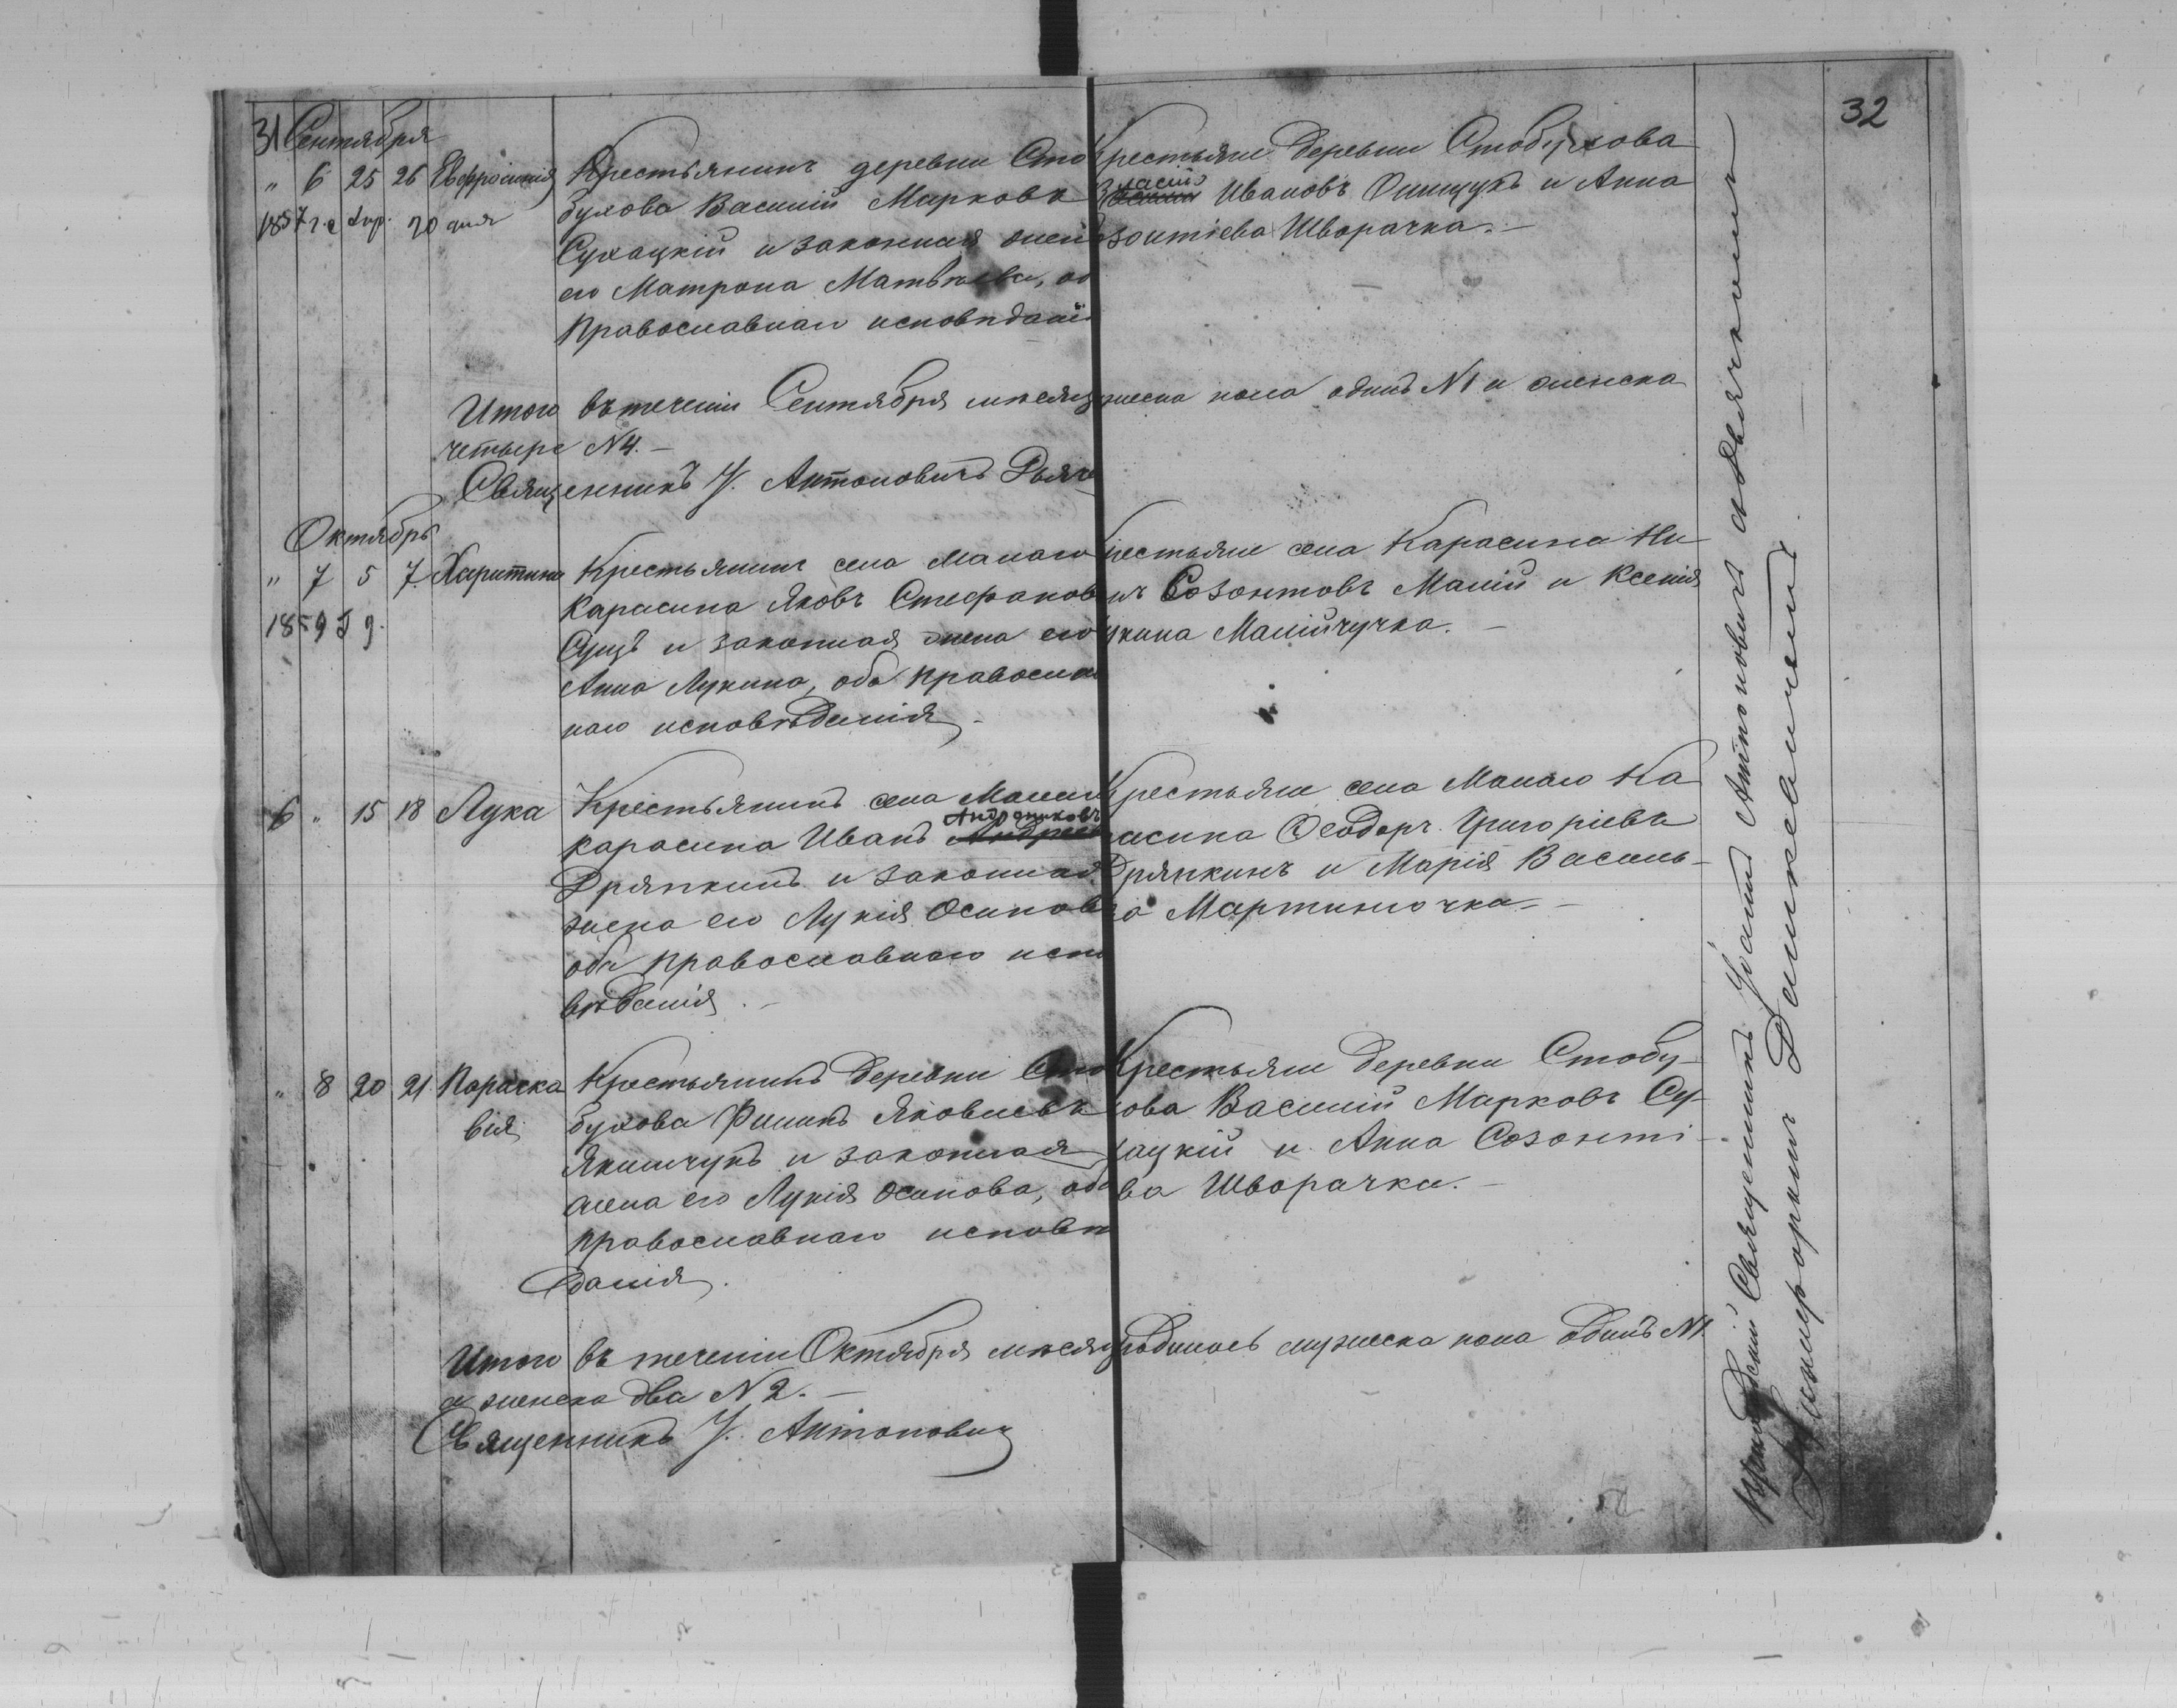 31
32
Сентября
" 6 25 26 Евфросинія
1857 г. е Апр. 20 дня
Крестьянинъ деревни Сто
бухова Василій Марковъ
Сухацкій и законная жена
его Матрона Матвѣева, об
Православнаго исповѣданія
Крестьяне деревни Стобухова
Иванов Онищукъ и Анна
зонтіева Шворачка.—
Итого въ теченіи Сентября мѣсяца
жеска пола одинъ N1 и женска
четыре N4.—
Священникъ У. Антоновичъ
Октябрь
" 7 5 7 Харитина
1859
Крестьянинъ села Малаго
Карасина Яковъ Стефановъ
и законная жена его
Анна Лукина, оба православ
наго исповѣданія.
Крестьяне села Карасина Ни
Созонтовъ Малій и Ксенія
Малійчучка.—
6 " 15 18 Лука
Крестьянинъ села Малаго
Андрониковъ
карасина Иванъ Андреев
Дряпкинъ и законная
жена его Лукія Осипова
оба православнаго испо
вѣданія.—
Крестьяне села Малаго Ка
расина Ѳеодоръ Григоріевъ
Дряпкинъ и Марія Василь-
ва Мартинючка.—
" 8 20 21 Параске
вія
Крестьянинъ деревни Сто
бухова Филипъ Яковлевъ
Якимчукъ и законная
жена его Лукія Осипова, оба
православнаго исповѣ
данія.
Крестьяне деревни Стобу-
хова Василій Марковъ Су-
хацкій и Анна Созонті-
ва Шворачка.—
Итого въ теченіи Октября мѣсяца родилось мужеска пола одинъ N1.
и женска два N2.—
Священникъ У. Антонович
Священникъ Антоновичъ